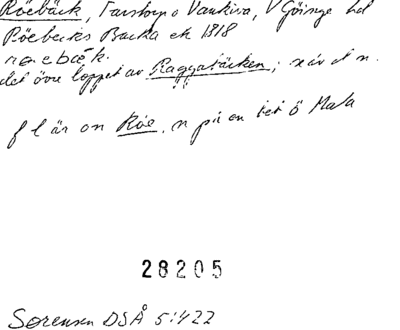 Röebäck, Farstorp o Vankiva, V Göinge hd
Röebecks Backa ek 1818
roebæk.
det övre loppet av Raggabäcken; när d n.
f l är on Röe, n på en
28205
Sørensen DSÅ 5:422